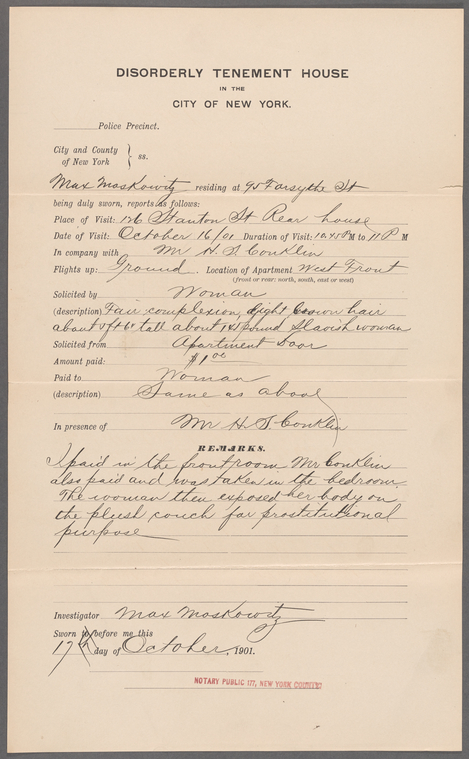 DISORDERLY TENEMENT HOUSE
IN THE
CITY OF NEW YORK.
Police Precinct.
City and County
of New York } ss.
Max Moskowitz residing at 95 Forsythe St
being duly sworn, reports as follows:
Place of Visit: 126 Stanton St Rear house
Date of Visit: October 16/01 Duration of Visit: 10.45 P M to 11 P M
In company with Mr H. S. Conklin
Flights up: Ground Location of Apartment West Front
(front or rear: north, south, east or west)
Solicited by Woman
(description) Fair complexion, light brown hair
about 5ft 6in tall about 145 pound Slavish woman
Solicited from Apartment Door
Amount paid: $1.00
Paid to Woman
(description) Same as above
In presence of Mr H. S. Conklin
REMARKS.
I paid in the front room Mr Conklin
also paid and was taken in the bedroom.
The woman then exposed her body on
the plush couch for prostitutional
purpose
Investigator Max Moskowitz
Sworn to before me this
17th day of October, 1901.
NOTARY PUBLIC 177, NEW YORK COUNTY